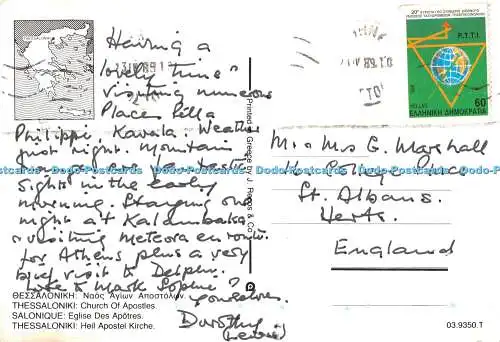 Having a
lovely time
visiting numerous
Places Pella
Philippi, Kavala. Weather
just right. Mountain
sights in the early
morning. Staying one
night at Kalambaka
visiting Meteora en route
for Athens plus a very
brief visit to Delphi.
Love to Mark Sophie &
yourselves.
Dorothy
(Lewis)
ΘΕΣΣΑΛΟΝΙΚΗ: Ναός Αγίων Αποστόλων.
THESSALONIKI: Church Of Apostles.
SALONIQUE: Eglise Des Apôtres.
THESSALONIKI: Heil Apostel Kirche.
Printed in Greece by J. & Co
P.T.T.I.
HELLAS 60
ΕΛΛΗΝΙΚΗ ΔΗΜΟΚΡΑΤΙΑ
Mr & Mrs G. Marshall
College Place
St. Albans.
Herts.
England
03.9350.T
Dodo-Postcards Dodo-Postcards Dodo-Postcards Dodo-Postcards Dodo-Postcards